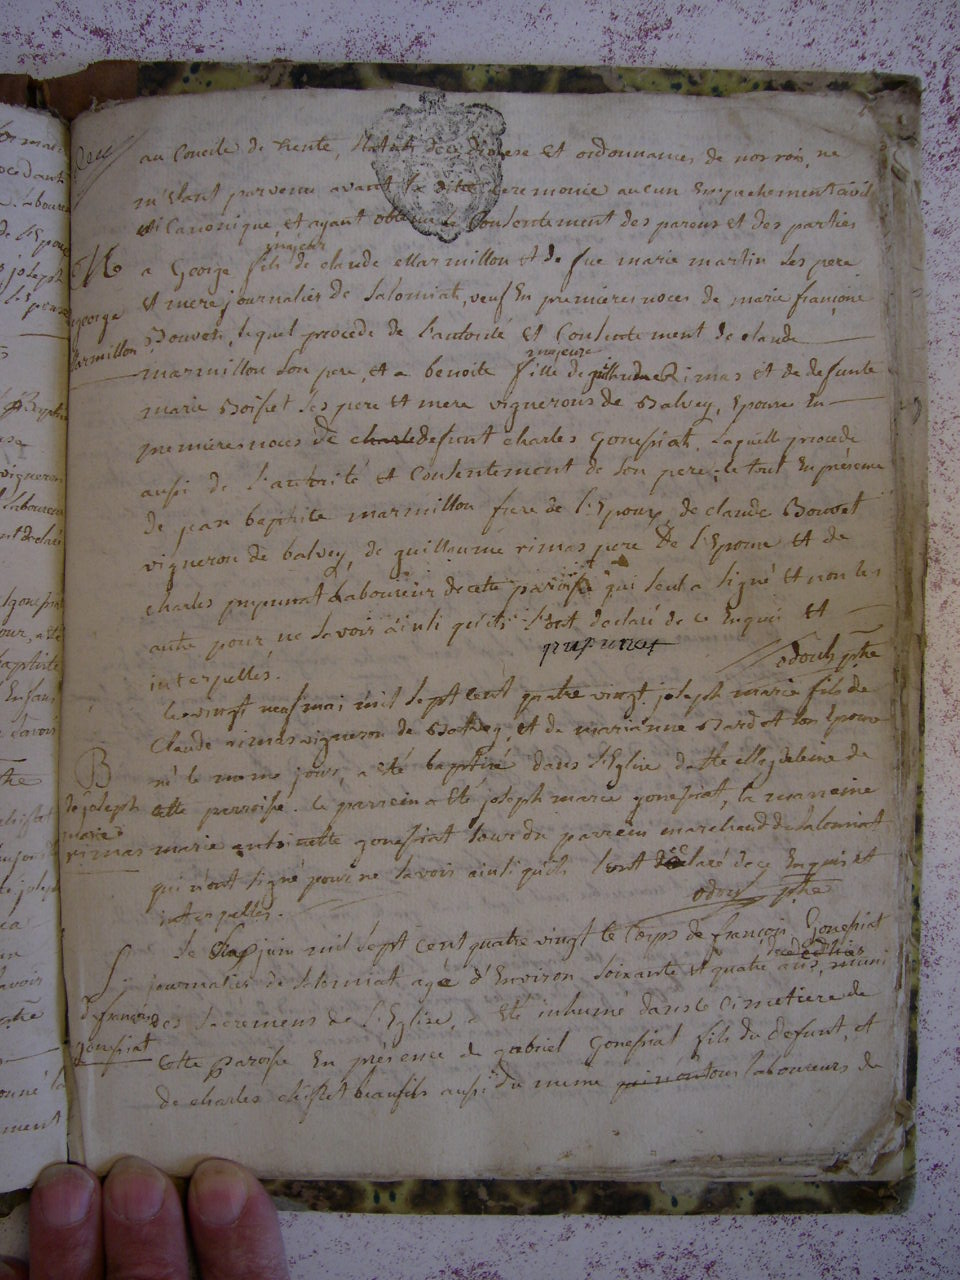 au Concile de trente, Statuts du diocese et ordonnances de nos rois, ne
m'etant parvenu avant la dite ceremonie aucun Empechement civil
ni Canonique, et ayant obtenu le Consentement des parens et des parties
M
a George fils majeur de claude Marmillon et de fue marie martin Ses pere
et mere journalier de Salonniat, veuf En premieres noces de marie françoise
george
Marmillon
Bouvet, lequel procede de l'autorité et Consentement de claude
marmillon Son pere, et a benoite fille majeure de guillaume Rimas et de defunte
marie Boisset Ses pere et mere vignerons de Balvey, Epouse En
premieres noces de charle defunt charles gonessiat, Laquelle procede
aussi de l'autorité et Consentement de Son pere; le tout En présence
de jean baptiste marmillon frere de l'Epoux, de claude Bouvet
vigneron de balvey, de guillaume rimas pere de l'Epouse et de
charles pupunat Laboureur de cette paroisse qui seul a Signé et non les
autre pour ne Savoir ainsi qu'ils l'ont declaré de ce Enquis et
interpellés.
pupunat
odouh ptre
le vingt neuf mai mil Sept cent quatre vingt joseph marie fils de
Claude rimas vigneron de Balvey, et de marianne Bardet son Epouse
B
de joseph
marie
rimas
né le meme jour, a été baptisé dans l'Eglise de Ste Magdeleine de
cette parroisse. le parrein a Eté joseph marie gonessiat, la marreine
marie antoinette gonessiat Sœur du parrein marchand de Salonniat
qui n'ont signé pour ne Savoir ainsi qu'ils l'ont declaré de ce Enquis et
interpellés.
odouh ptre
S
de françois
gonessiat
Le Six juin mil Sept Cent quatre vingt le Corps de françois Gonessiat
journalier de Salonniat agé d'Environ Soixante et quatre ans, muni
des Sacremens de l'Eglise, a Eté inhumé dans le Cimetiere de
Cette Paroisse En présence de gabriel Gonessiat fils du defunt, et
de charles chistet beaufils aussi du meme tous laboureurs de